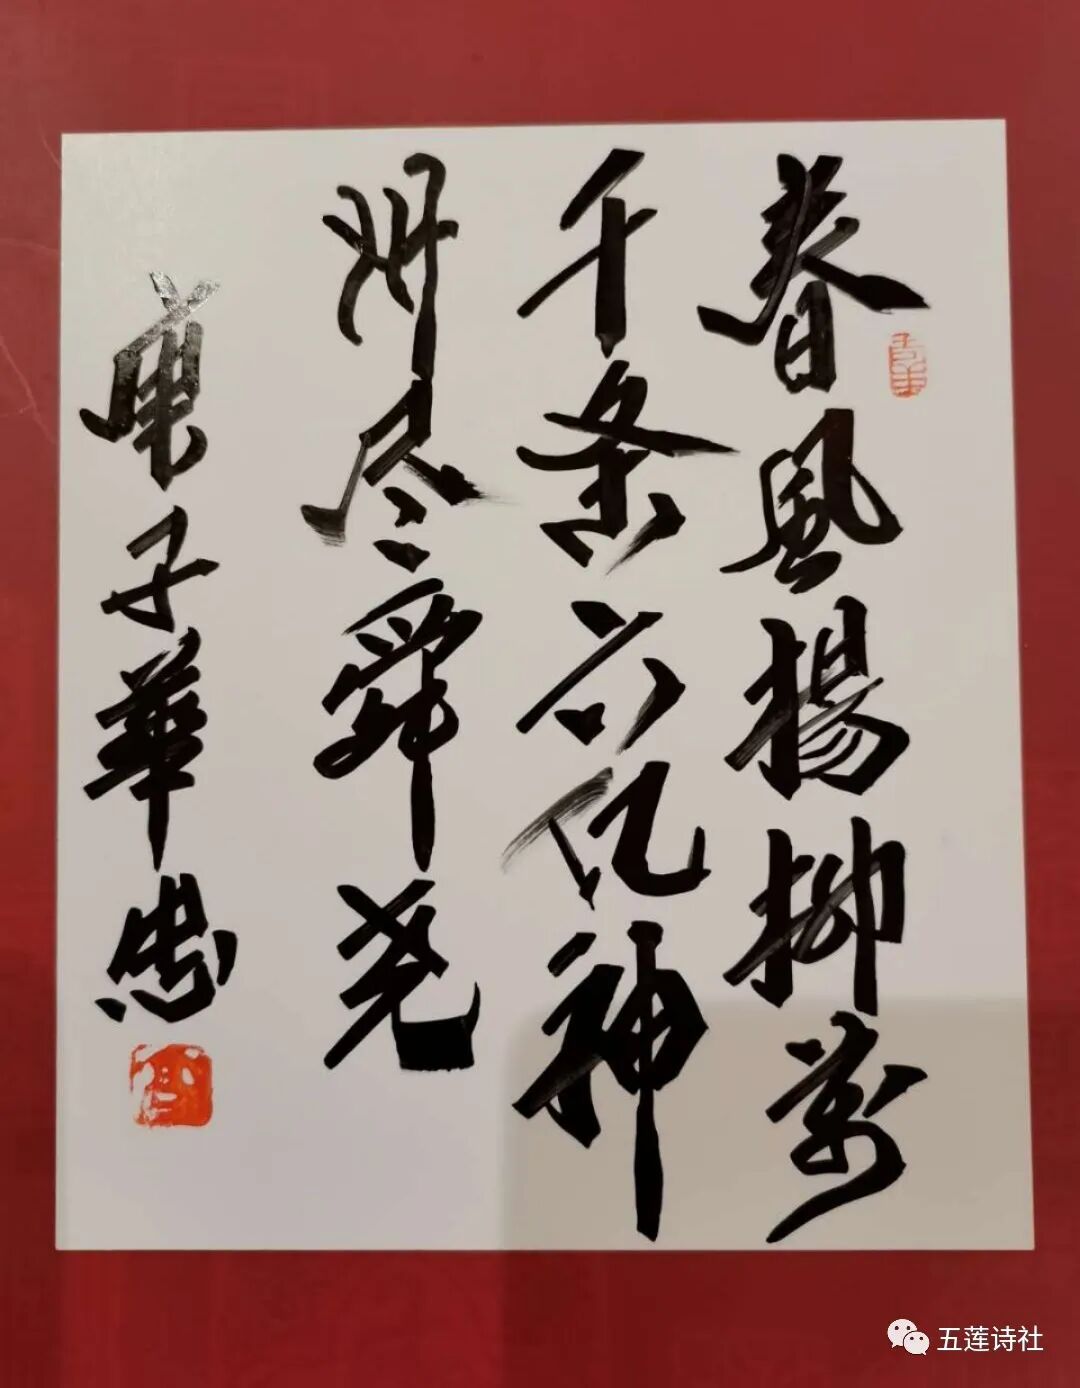 春風揚柳萬
千条六亿神
州尽舜尧
庚子華忠
五莲诗社